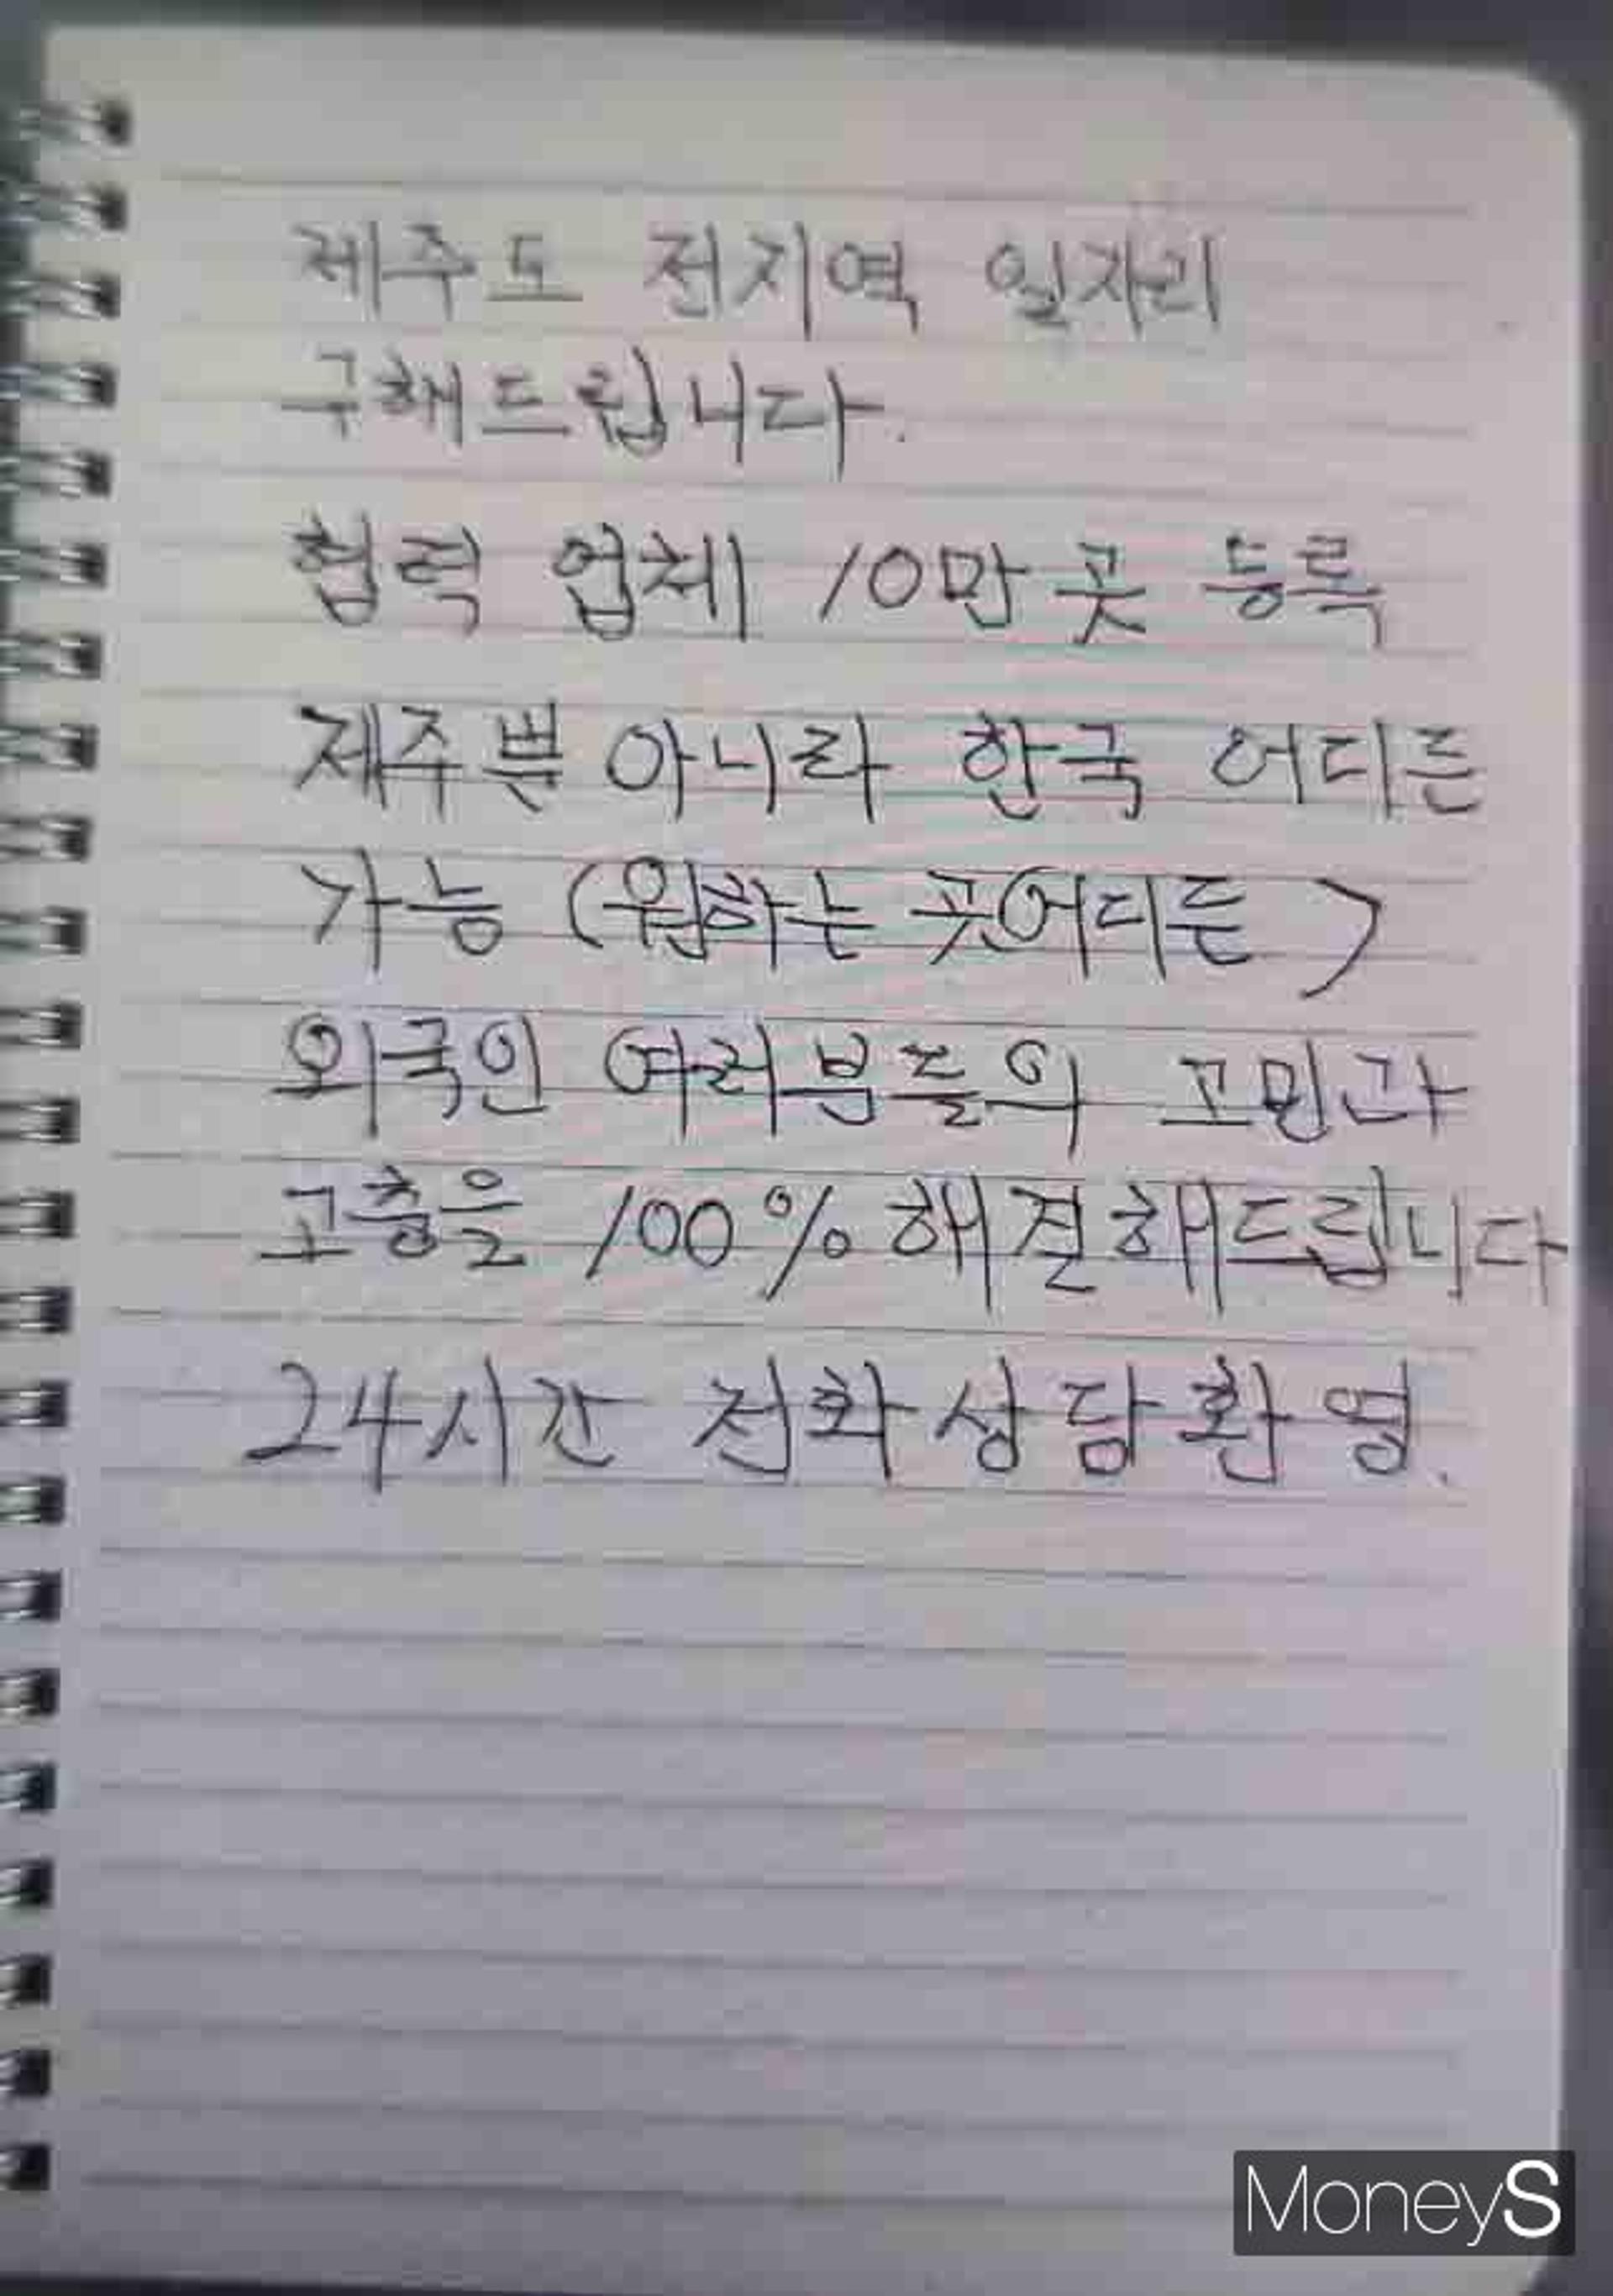 제주도 전지역 일자리
구해드립니다.
협력 업체 10만 곳 등록
제주뿐 아니라 한국 어디든
가능 (원하는 곳어디든)
외국인 여러분들의 고민과
고충을 100% 해결해드립니다
24시간 전화상담환영.
MoneyS